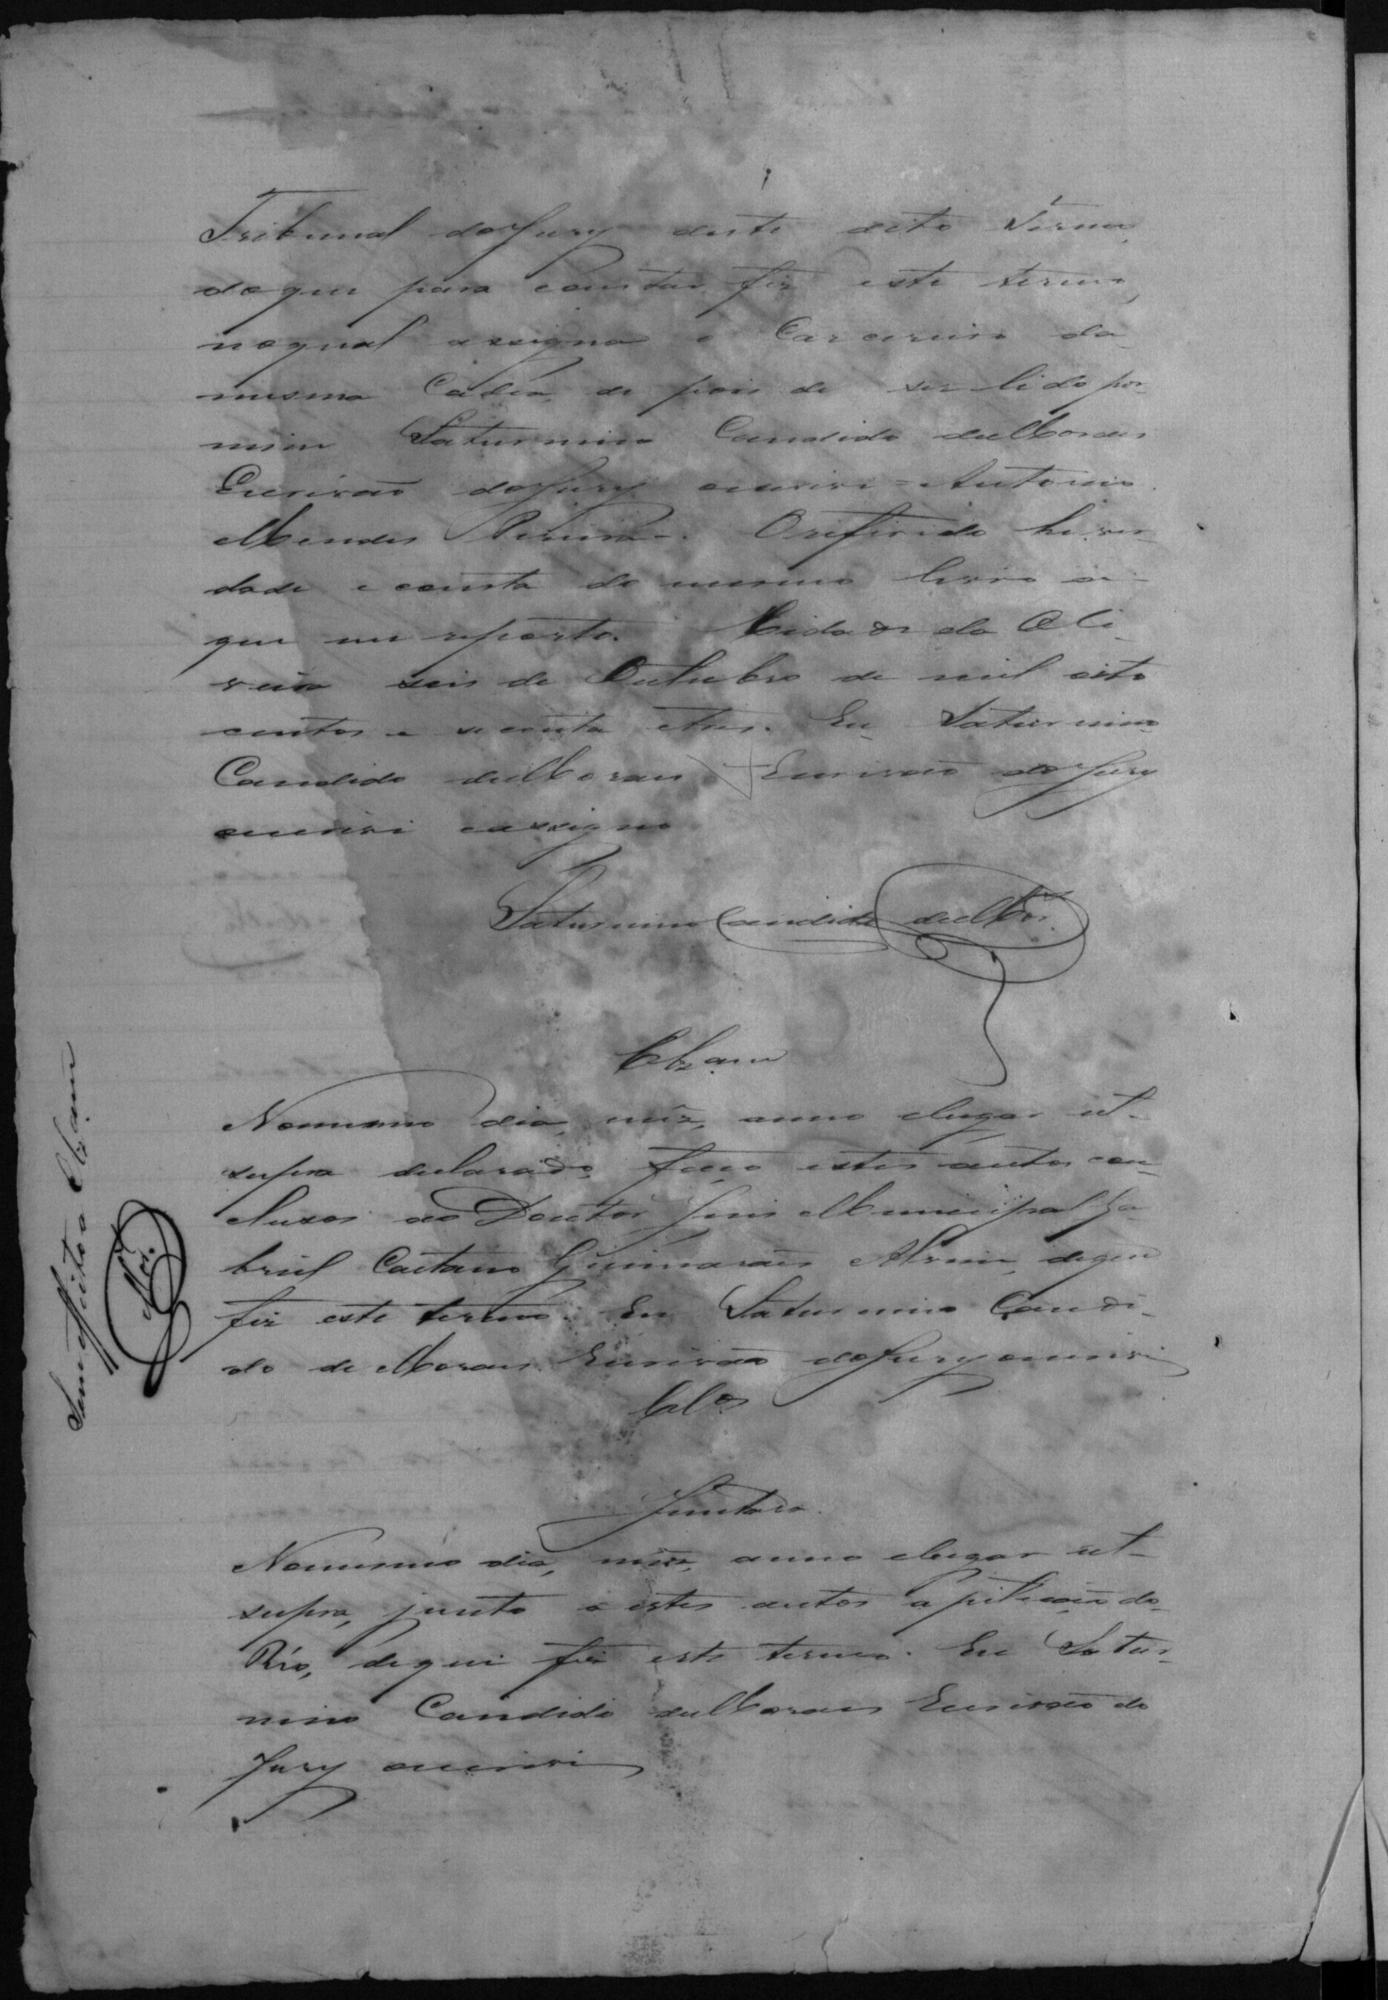 Tribunal do Jury deste dito Termo,
do que para constar fiz este termo,
no qual assigna o Carcereiro da
mesma Cadea, de pois de ser lido por
mim Saturnino Candido de Moraes
Escrivão do Jury escrivi = Antonio
Mendes Pereira. O referido he ver-
dade e consta do mesmo livro a
que me reporto. Cidade da Oli-
veira seis de Outubro de mil oito
centos e setenta e tres. Eu Saturnino
Candido de Moraes Escrivão do Jury
escrivi e assigno
Saturnino Candido de Mor.es
Clzam
No mesmo dia, mêz, anno e lugar ut-
supra declarado, faço estes autos con-
cluzos ao Doutor Juis Municipal Ga-
briel Caetano Guimarães Alvim, de que
fiz este termo. Eu Saturnino Candi-
do de Moraes Escrivão do Jury escrivi
Clos
Juntada
No mesmo dia, mêz, anno e lugar ut-
supra, junto a estes autos a petição do
Réo, de que fiz este termo. Eu Satur-
nino Candido de Moraes Escrivão do
Jury escrivi
Sem effeito a Clzam
Mor.es